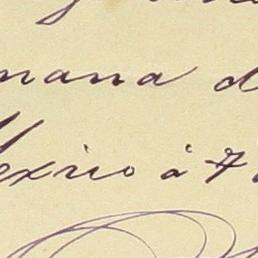 mana d
Mexico á 7